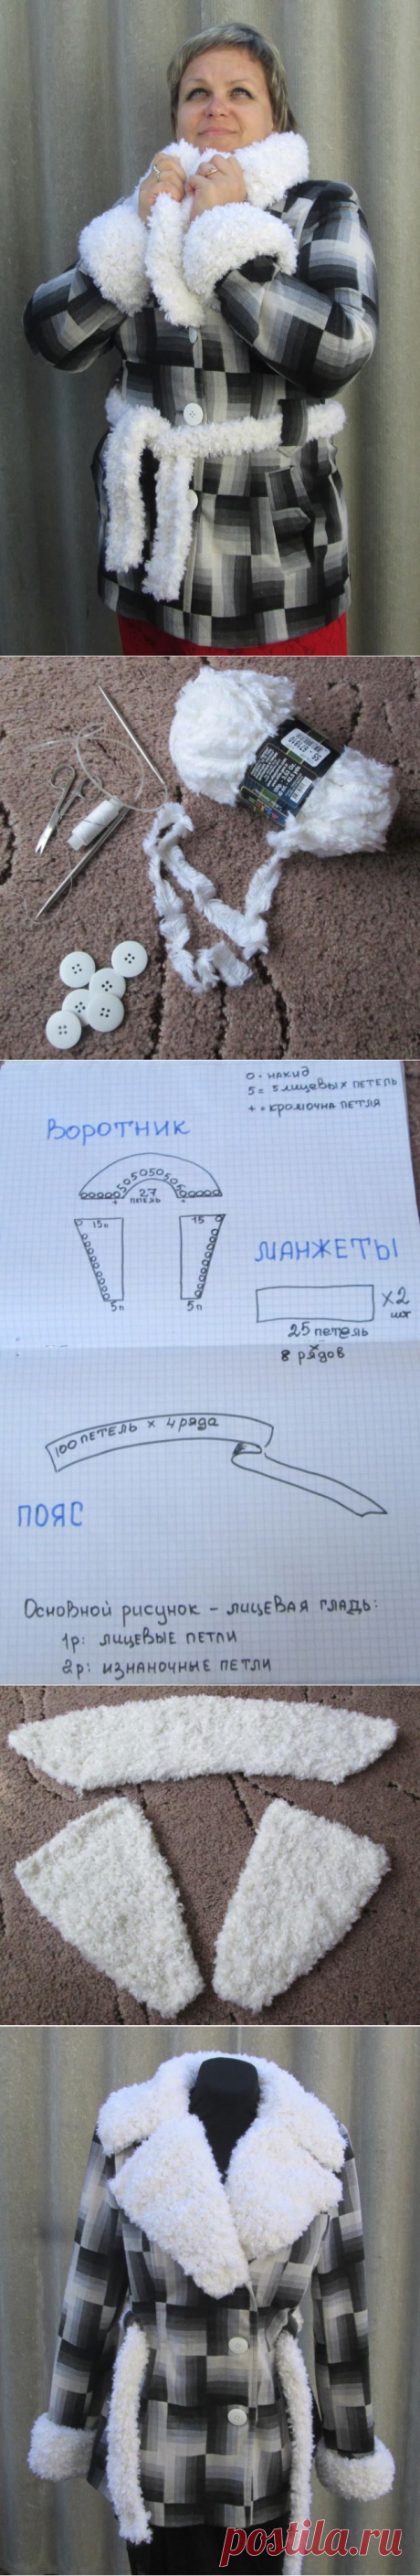 0 - накид
5 = 5 лицевых петель
+ = кромочна петля
Воротник
5 0 5 0 5 0 5 0 5
27
петель
+ +
15п 15
5п 5п
Манжеты
х2
шт
25 петель
х
8 рядов
100 петель х 4 ряда
Пояс
Основной рисунок - лицевая гладь:
1р: лицевые петли
2р: изнаночные петли
postila.ru